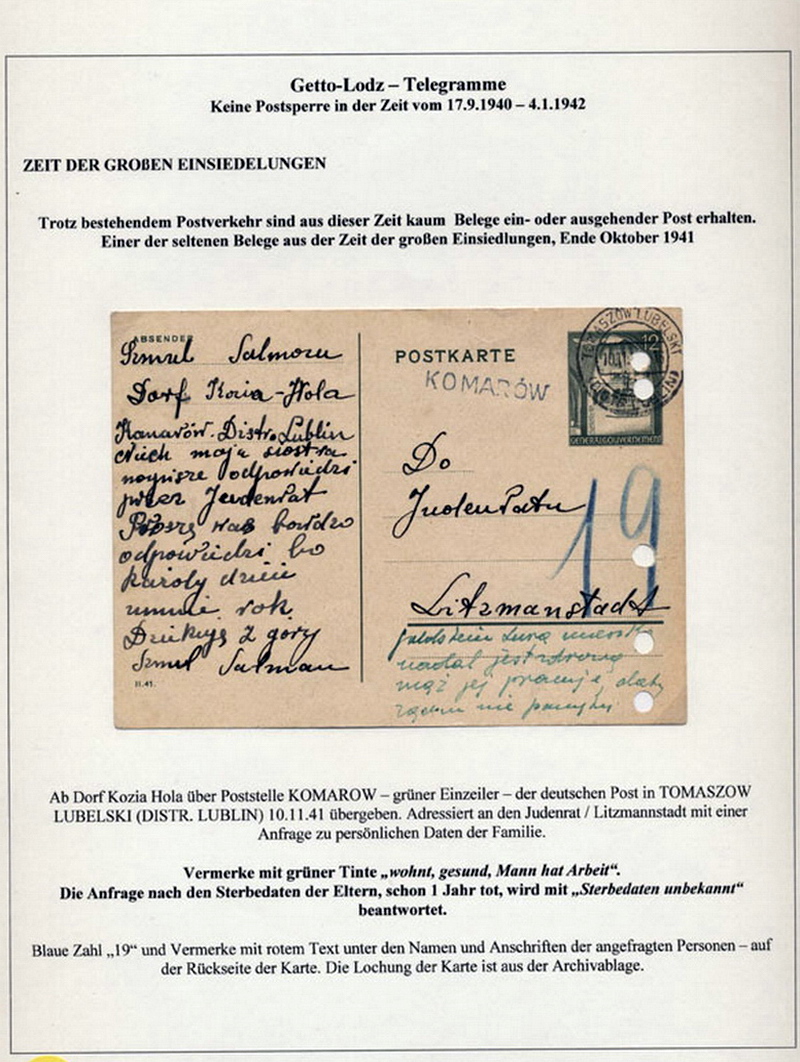 Getto-Lodz – Telegramme
Keine Postsperre in der Zeit vom 17.9.1940 – 4.1.1942
ZEIT DER GROßEN EINSIEDELUNGEN
Trotz bestehendem Postverkehr sind aus dieser Zeit kaum Belege ein- oder ausgehender Post erhalten.
Einer der seltenen Belege aus der Zeit der großen Einsiedlungen, Ende Oktober 1941
ABSENDER
Szmul Salmon
Dorf Kozia-Hola
Komarów Distr. Lublin
Niech moja siostra
napisze odpowiedzi
przez Judenrat
Proszę was bardzo
odpowiedzi bo
każdy dzień
umnie rok
Dziękuję z góry
Szmul Salman
II.41.
POSTKARTE
KOMARÓW
TOMASZOW LUBELSKI
12
GENERALGOUVERNEMENT
Do
Judenratu
19
Litzmanstadt
nadal jest zdrowa
mąż jej pracuje, daty
zgonu nie
Ab Dorf Kozia Hola über Poststelle KOMAROW – grüner Einzeiler – der deutschen Post in TOMASZOW
LUBELSKI (DISTR. LUBLIN) 10.11.41 übergeben. Adressiert an den Judenrat / Litzmannstadt mit einer
Anfrage zu persönlichen Daten der Familie.
Vermerke mit grüner Tinte „wohnt, gesund, Mann hat Arbeit“.
Die Anfrage nach den Sterbedaten der Eltern, schon 1 Jahr tot, wird mit „Sterbedaten unbekannt“
beantwortet.
Blaue Zahl „19“ und Vermerke mit rotem Text unter den Namen und Anschriften der angefragten Personen – auf
der Rückseite der Karte. Die Lochung der Karte ist aus der Archivablage.